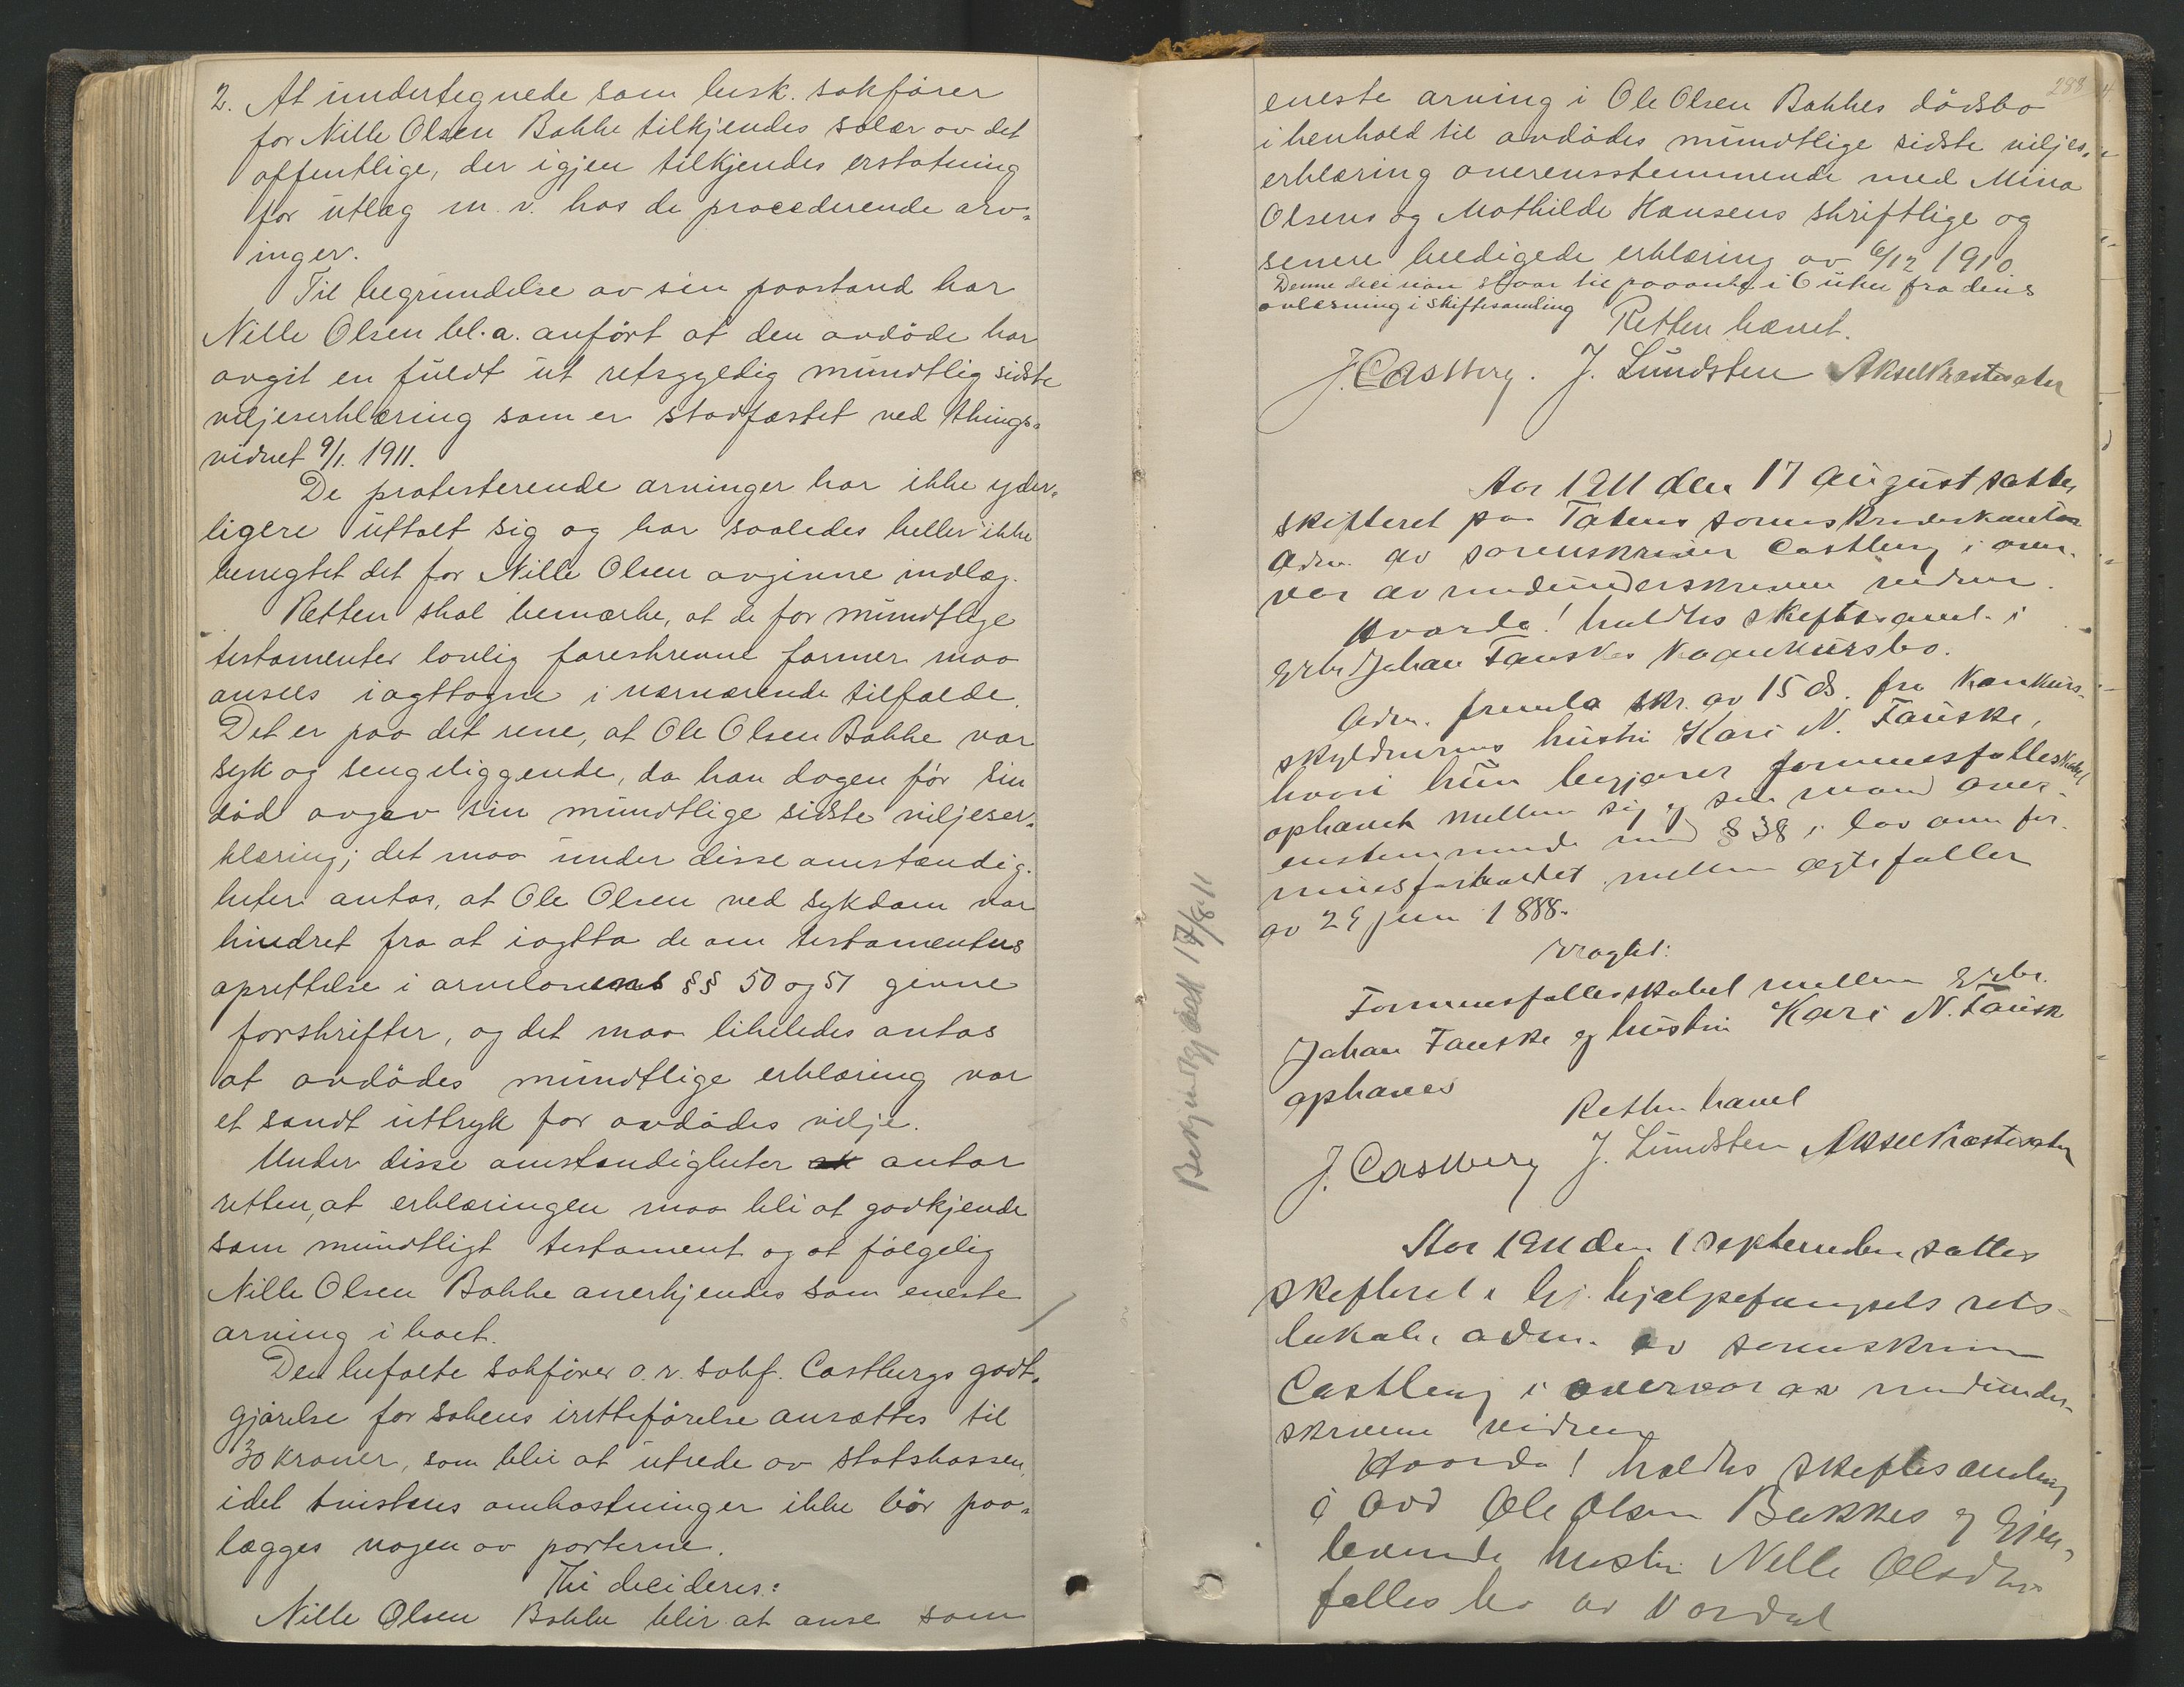 2. At undertegnede som besk. sakfører
for Nille Olsen Bakke tilkjendes salær av det
offentlige, der igjen tilkjendes erstatning
for utlæg m. v. hos de procederende arv-
inger.
Til begrundelse av sin paastand har
Nille Olsen bl. a. anført at den avdøde har
avgit en fuldt ut retsgyldig mundtlig sidste
viljeserklæring som er stadfæstet ved things-
vidnet 9/1. 1911.
De protesterende arvinger har ikke yder-
ligere uttalt sig og har saaledes heller ikke
benegtet det for Nille Olsen avgivne indlæg.
Retten skal bemærke, at de for mundtlige
testamenter lovlig foreskrevne former maa
ansees iagttagne i nærværende tilfælde.
Det er paa det rene, at Ole Olsen Bakke var
syk og sengeliggende, da han dagen før sin
død avgav sin mundtlige sidste viljeser-
klæring; det maa under disse omstændig-
heter antas, at Ole Olsen ved sykdom var
hindret fra at iagtta de om testamenters
oprettelse i arvelovens §§ 50 og 51 givne
forskrifter, og det maa likeledes antas
at avdødes mundtlige erklæring var
et sandt uttryk for avdødes vilje.
Under disse omstændigheter antar
retten, at erklæringen maa bli at godkjende
som mundtligt testament og at følgelig
Nille Olsen Bakke anerkjendes som eneste
arving i boet.
Den befalte sakfører o. r. sakf. Castbergs godt-
gjørelse for sakens iretteførelse ansættes til
30 kroner, som blir at utrede av statskassen,
idet tvistens omkostninger ikke bør paa-
lægges nogen av parterne.
Thi decideres:
Nille Olsen Bakke blir at anse som
288
eneste arving i Ole Olsen Bakkes dødsbo
i henhold til avdødes mundtlige sidste viljes-
erklæring overensstemmende med Mina
Olsens og Mathilde Hansens skriftlige og
senere beedigede erklæring av 6/12 1910.
Denne decision staar til paaanke i 6 uker fra dens
avlæsning i skiftesamling
Retten hævet.
J. Castberg. J. Lundsten Aksel Præstesæter
Aar 1911 den 17 august sattes
skifteret paa Totens sorenskriverkontor
adm. av sorenskriver Castberg i over-
vær av medunderskrevne vidner.
Hvorda! holdtes skiftesaml. i
Grbr. Johan Fauskes konkursbo.
Adm. fremla skr. av 15 ds. fra konkurs-
skyldnerens hustru Kari N. Fauske,
hvori hun begjærer formuesfællesskabet
ophævet mellem sig og sin mand over-
ensstemmende med § 38 i lov om for-
muesforholdet mellem ægtefæller
av 29 juni 1888.
Avsagt:
Formuesfællesskabet mellem grbr.
Johan Fauske og hustru Kari N. Fauske
ophæves
Retten hævet
J. Castberg J. Lundsten Aksel Præstesæter
Bekjendtgjort 17/8 11
Aar 1911 den 1 september sattes
skifteret i Gj. hjælpefængsels rets-
lokale, adm. av sorenskriver
Castberg i overvær av medunder-
skrevne vidner
Hvorda! holdtes skiftesamling
i avd Ole Olsen Bakkes og gjen-
levende hustru Nille Olsdtrs
fælles bo av Vardal